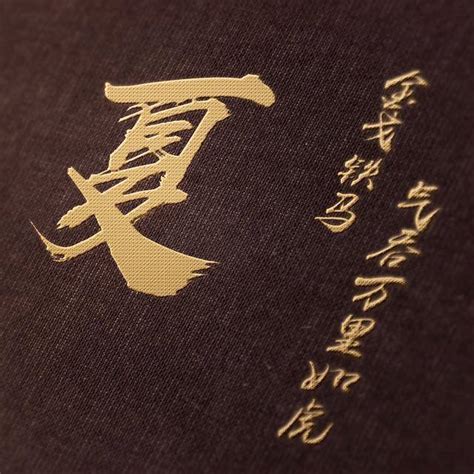 夏
金戈铁马
气吞万里如虎